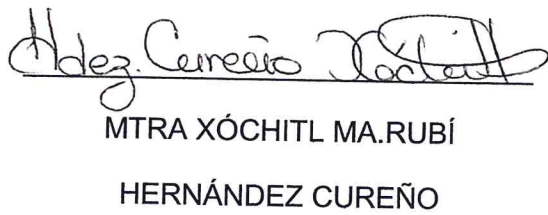 Hdez. Cureño Xóchitl
MTRA XÓCHITL MA.RUBÍ
HERNÁNDEZ CUREÑO